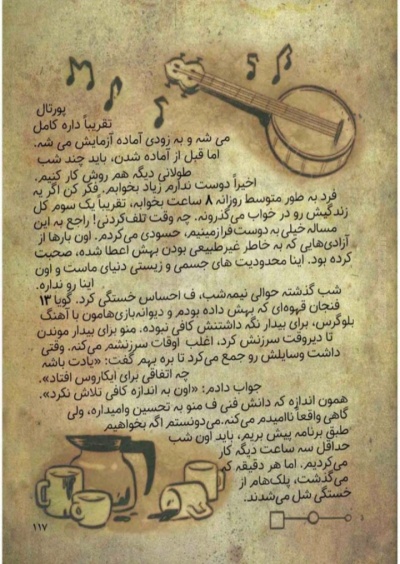 پورتال
تقریباً داره کامل
می شه و به زودی آماده آزمایش می شه.
اما قبل از آماده شدن، باید چند شب
طولانی دیگه هم روش کار کنیم.
اخیراً دوست ندارم زیاد بخوابم. فکر کن اگر یه
فرد به طور متوسط روزانه ۸ ساعت بخوابه، تقریبا یک سوم کل
زندگیش رو در خواب می‌گذرونه. چه وقت تلف‌کردنی! راجع به این
مساله خیلی به دوست فرازمینیم، حسودی می‌کردم. اون بارها از
آزادی‌هایی که به خاطر غیرطبیعی بودن بهش اعطا شده، صحبت
کرده بود. اینا محدودیت های جسمی و زیستی دنیای ماست و اون
اینا رو نداره.
شب گذشته حوالی نیمه‌شب، ف احساس خستگی کرد. گویا ۱۳
فنجان قهوه‌ای که بهش داده بودم و دیوانه‌بازی‌هامون با آهنگ
بلوگرس، برای بیدار نگه داشتنش کافی نبوده. منو برای بیدار موندن
تا دیروقت سرزنش کرد، اغلب اوقات سرزنشم می‌کنه. وقتی
داشت وسایلش رو جمع می‌کرد تا بره بهم گفت: «یادت باشه
چه اتفاقی برای آیکاروس افتاد».
جواب دادم: «اون به اندازه کافی تلاش نکرد».
همون اندازه که دانش فنی ف منو به تحسین وامیداره، ولی
گاهی واقعاً ناامیدم می‌کنه. می‌دونستم اگه بخواهیم
طبق برنامه پیش بریم، باید اون شب
حداقل سه ساعت دیگه کار
می‌کردیم. اما هر دقیقه که
می‌گذشت، پلک‌هام از
خستگی شل می‌شدند.
۱۱۷